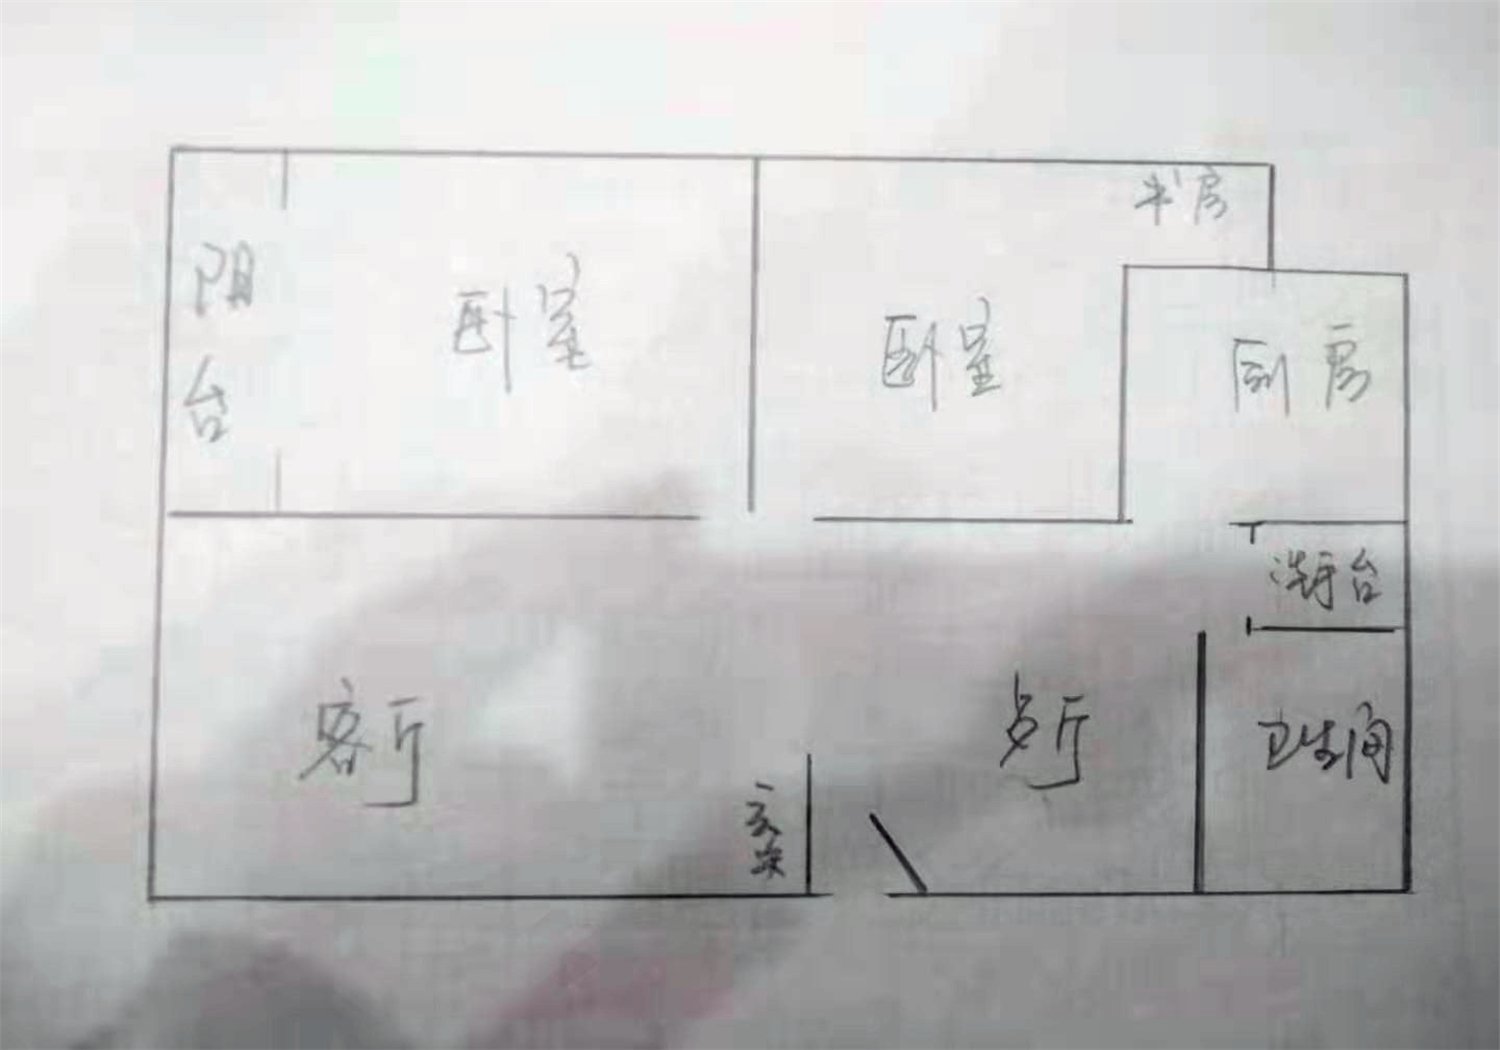 书房
阳台
卧室
卧室
厨房
洗手台
客厅
餐厅
卫生间
玄关